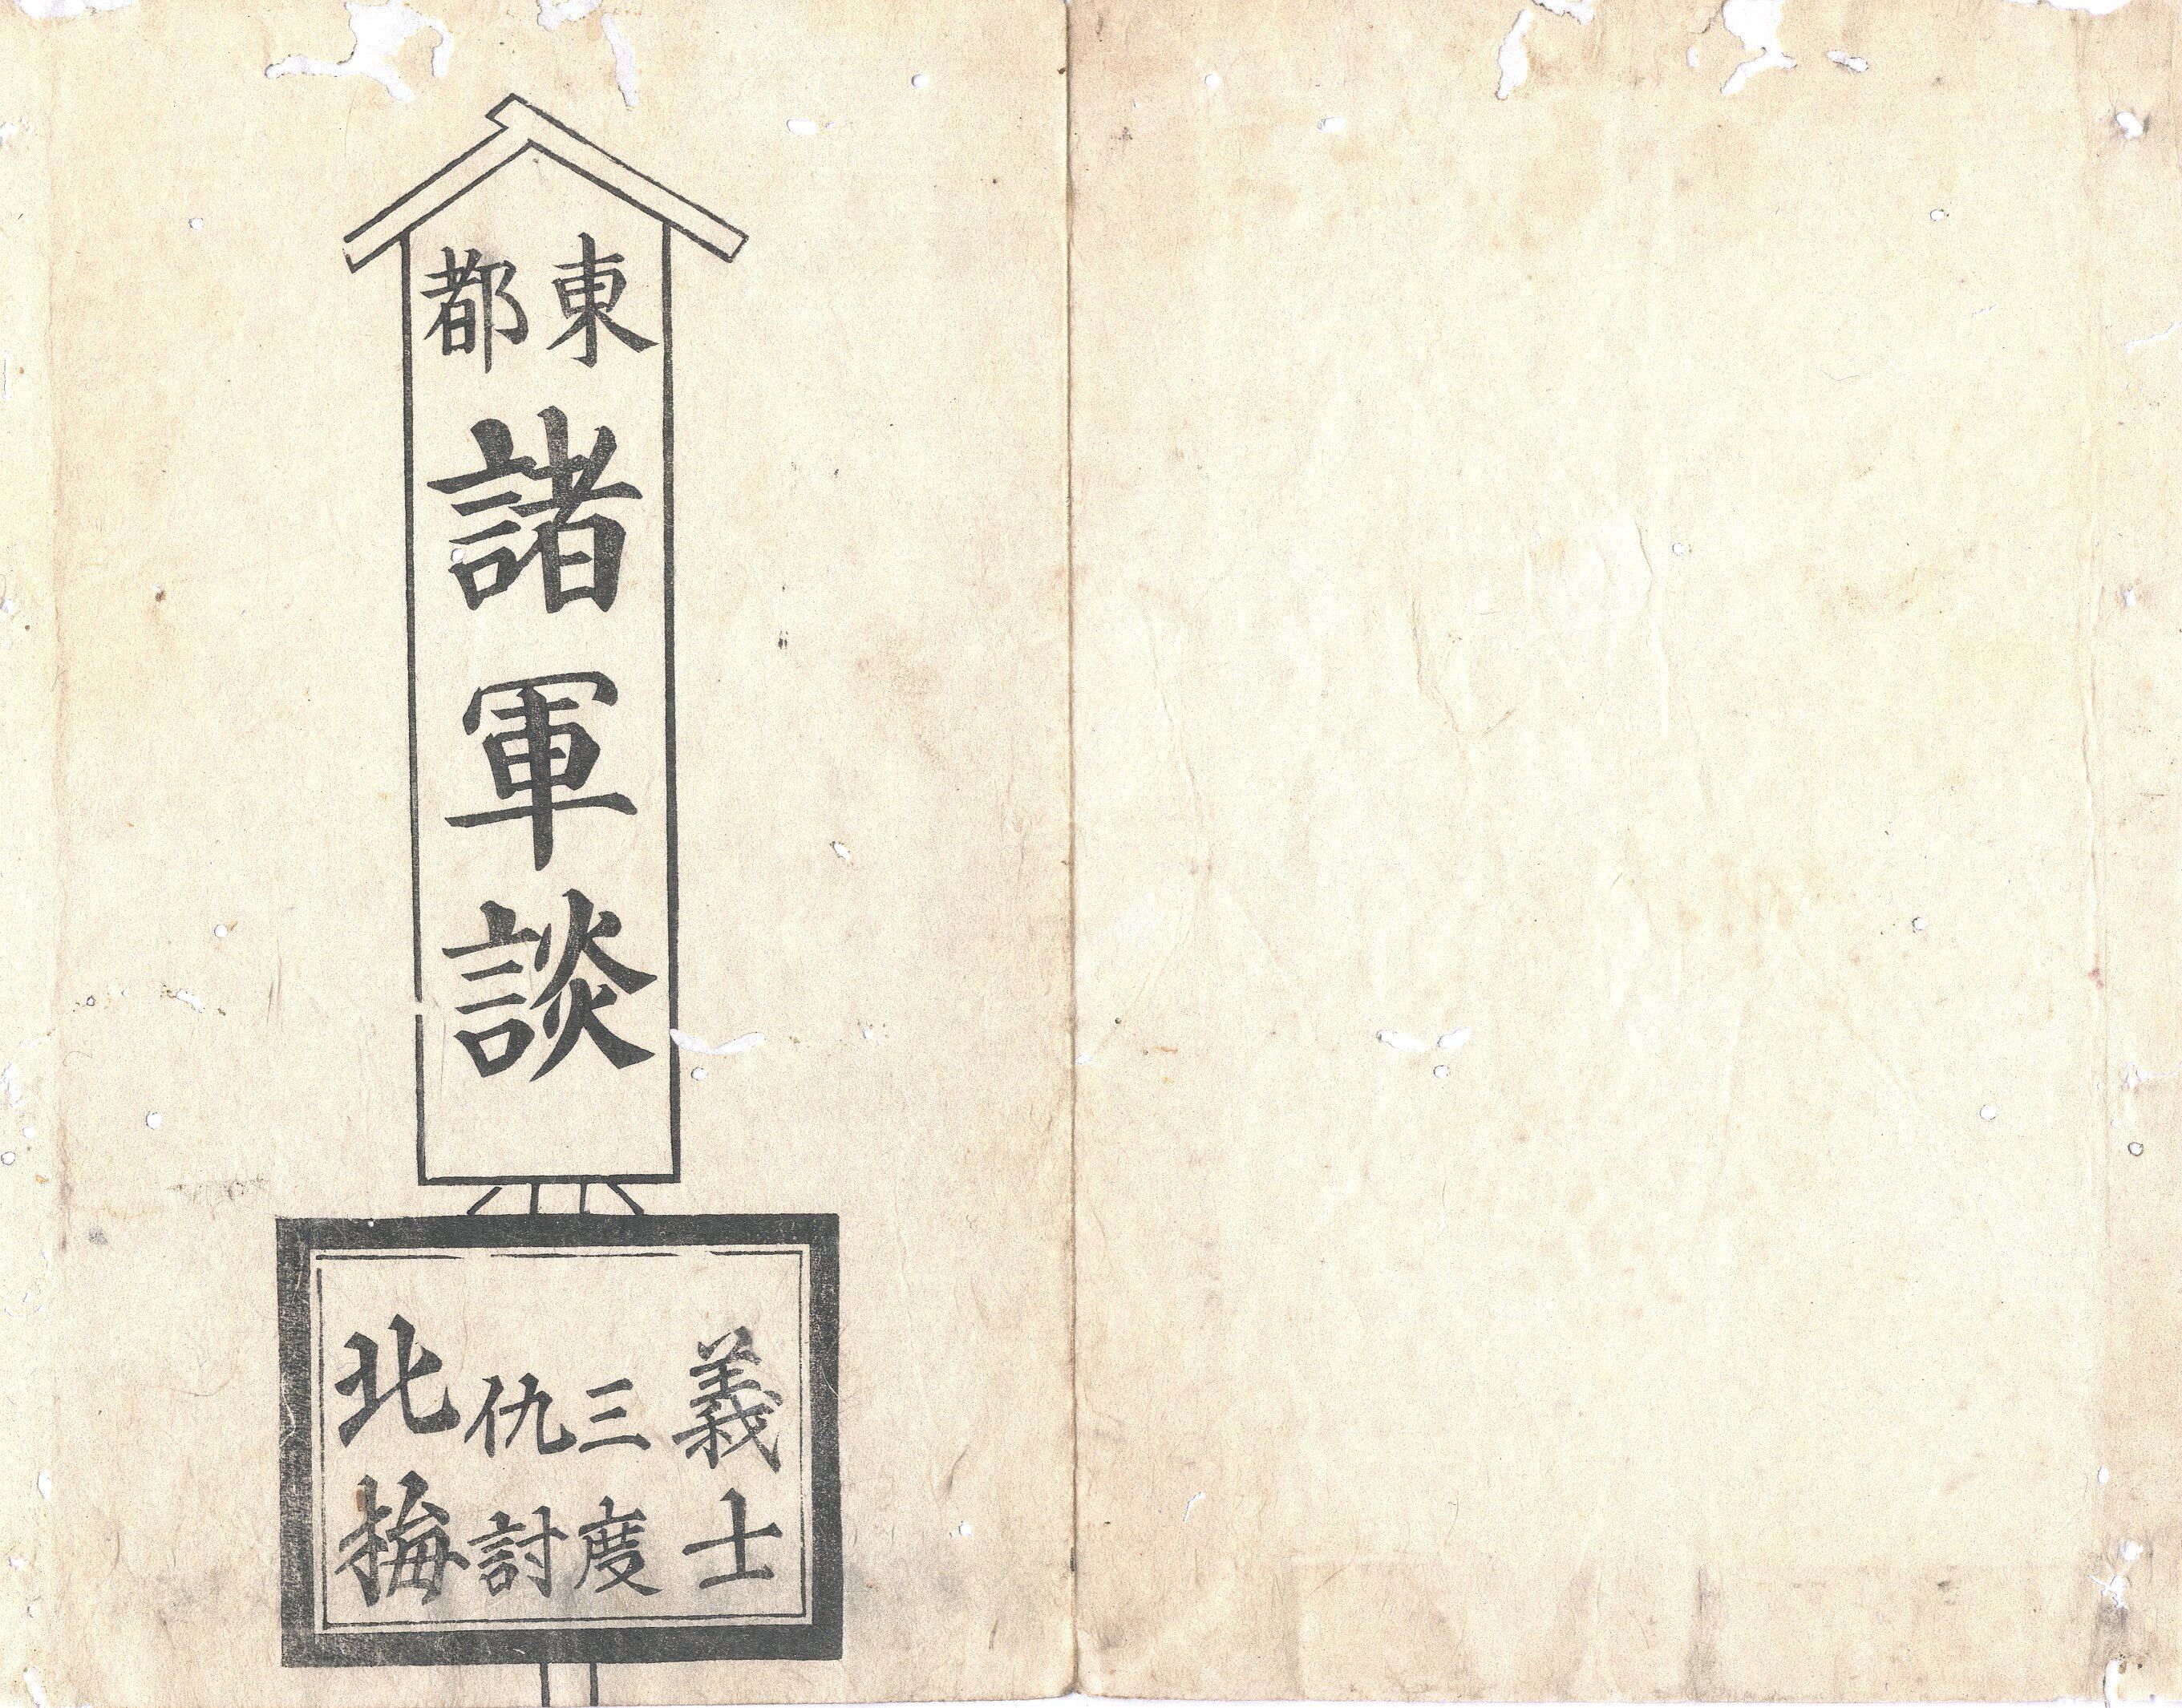 東都
諸軍談
義士
三度
仇討
北梅